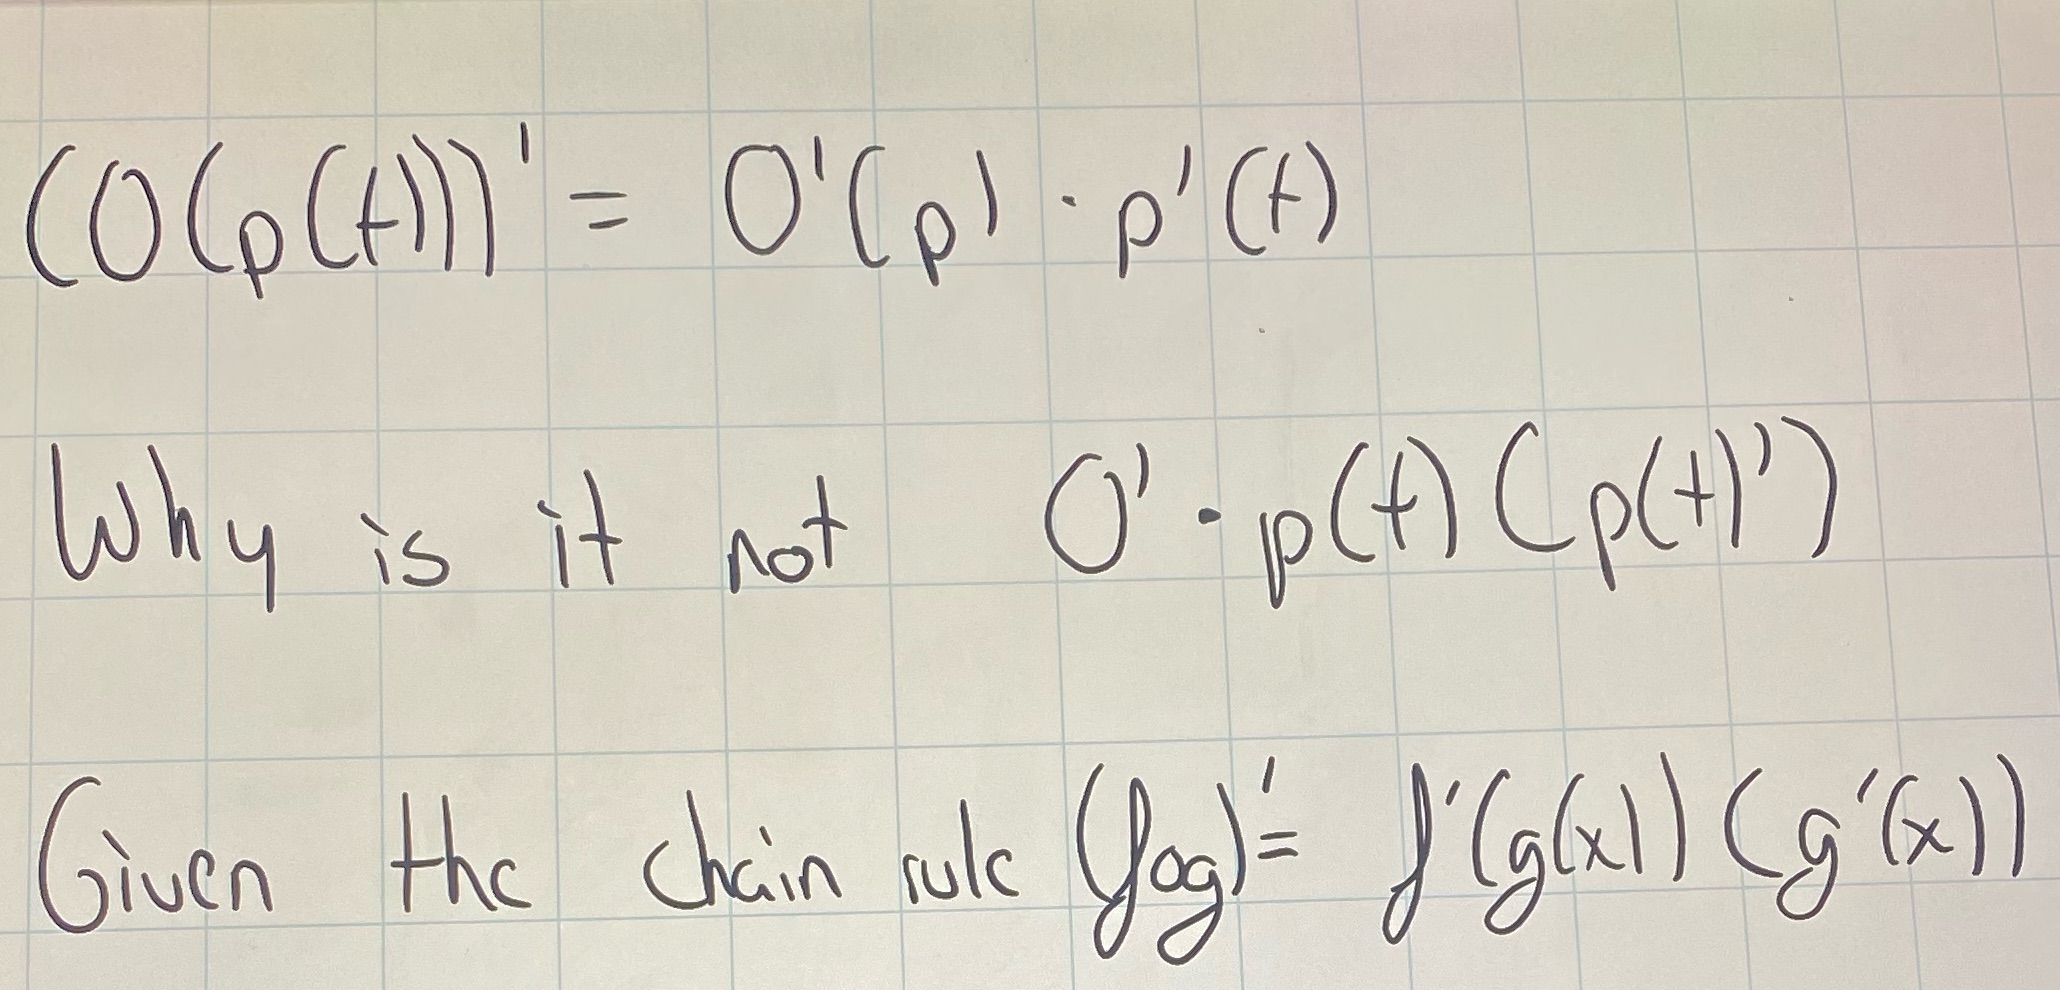 (O(p(t)))' = O'(p) · p'(t)
Why is it not O' · p(t) (p(t)')
Given the chain rule (fog)' = f'(g(x)) (g'(x))